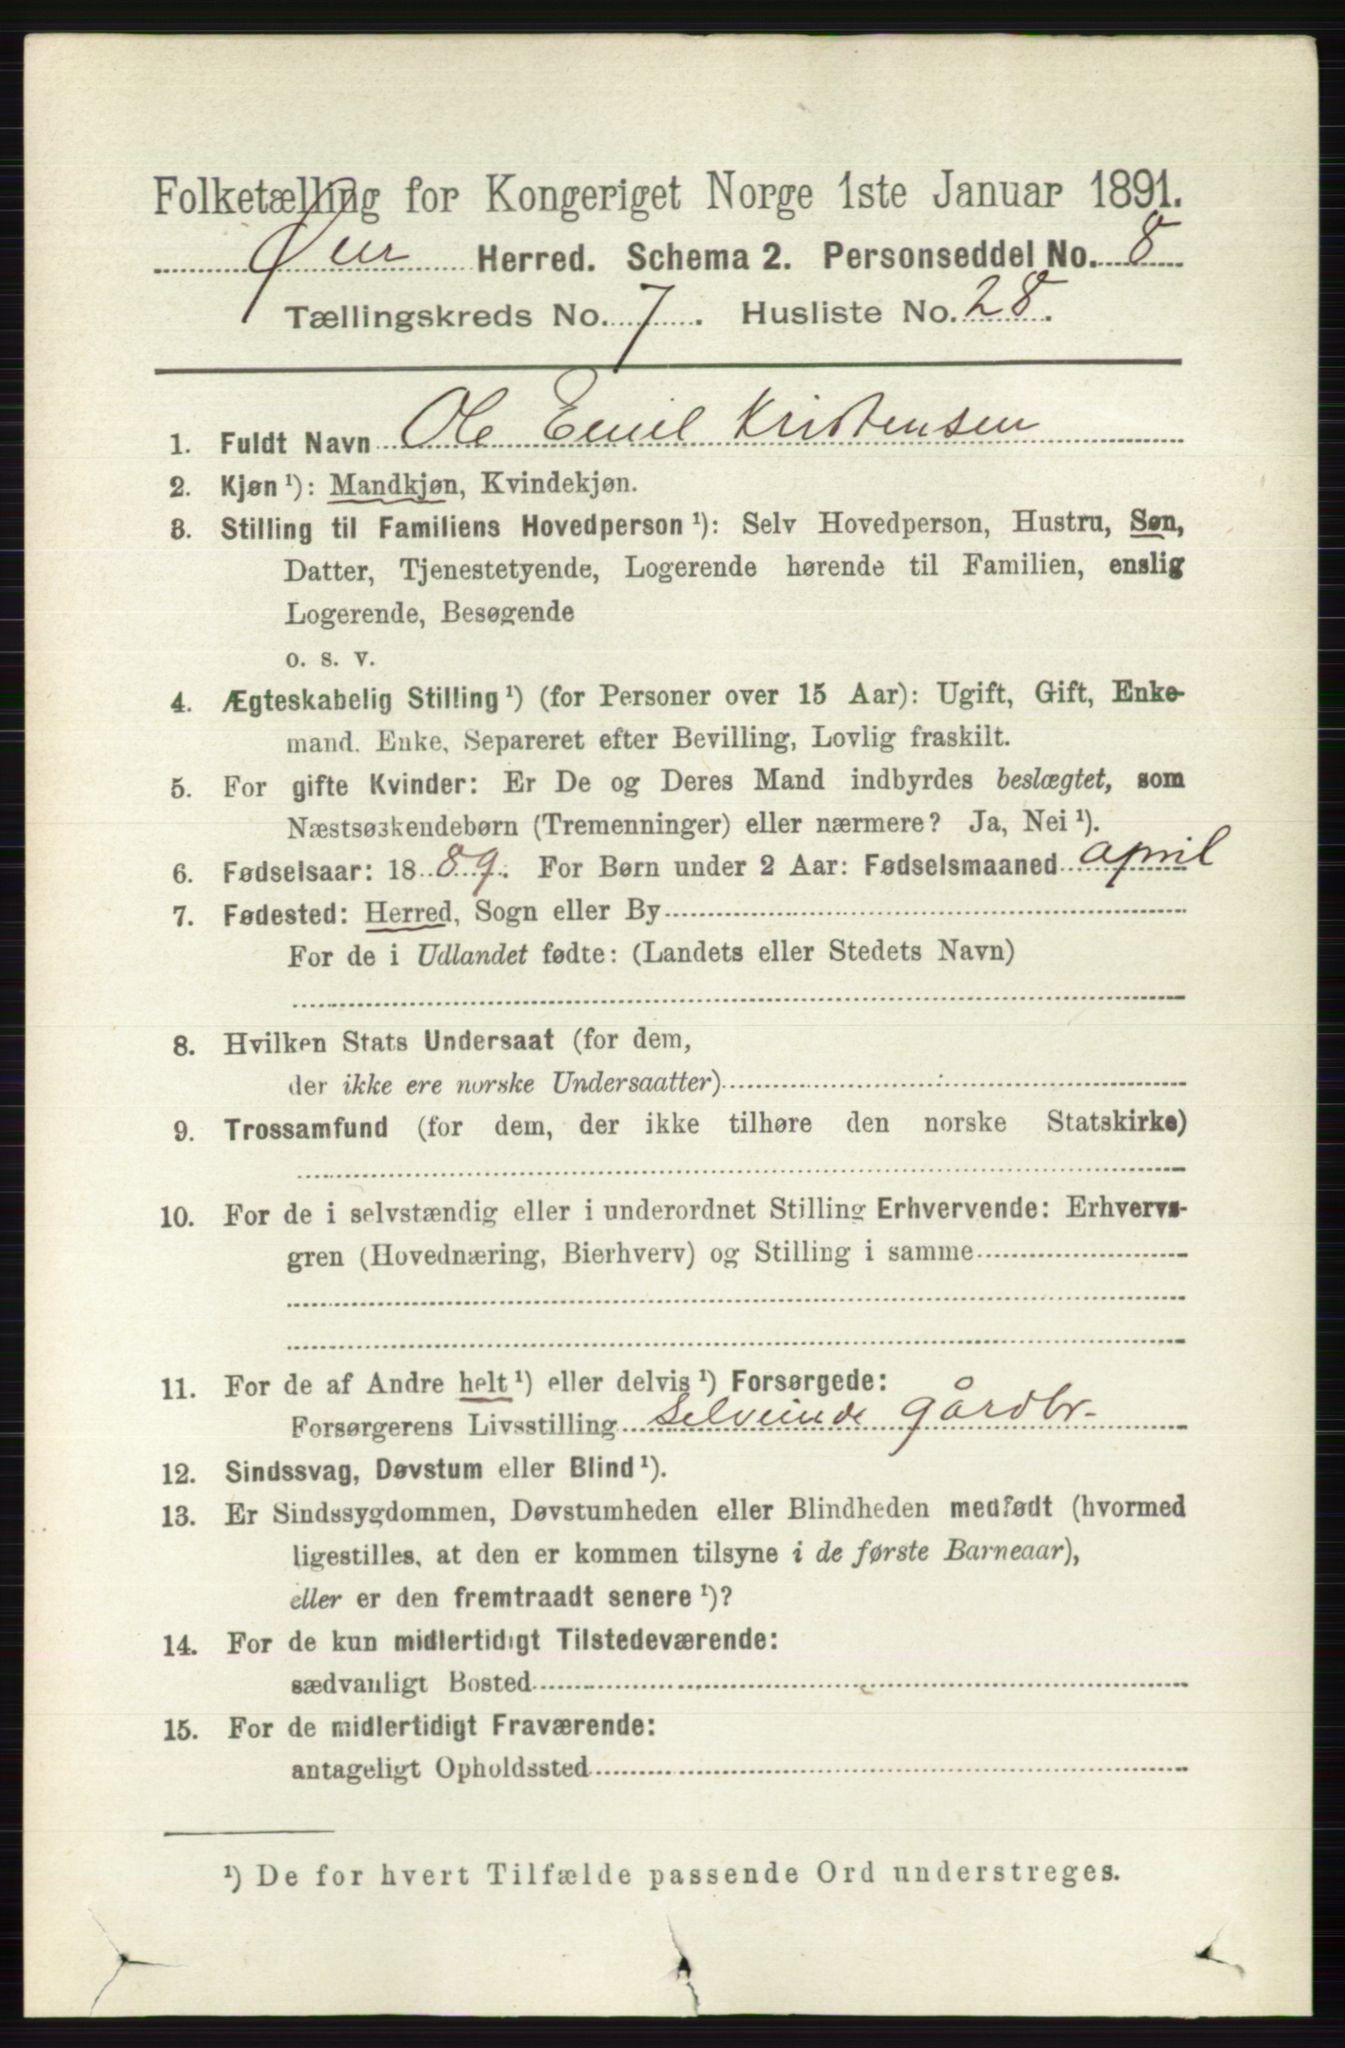 Folketælling for Kongeriget Norge 1ste Januar 1891.
Øier Herred. Schema 2. Personseddel No. 8
Tællingskreds No. 7. Husliste No. 28.
1. Fuldt Navn Ole Emil Kristensen
2. Kjøn ¹): Mandkjøn, Kvindekjøn.
3. Stilling til Familiens Hovedperson ¹): Selv Hovedperson, Hustru, Søn,
Datter, Tjenestetyende, Logerende hørende til Familien, enslig
Logerende, Besøgende
o. s. v.
4. Ægteskabelig Stilling ¹) (for Personer over 15 Aar): Ugift, Gift, Enke-
mand. Enke, Separeret efter Bevilling, Lovlig fraskilt.
5. For gifte Kvinder: Er De og Deres Mand indbyrdes beslægtet, som
Næstsøskendebørn (Tremenninger) eller nærmere? Ja, Nei ¹).
6. Fødselsaar: 1889. For Børn under 2 Aar: Fødselsmaaned april
7. Fødested: Herred, Sogn eller By
For de i Udlandet fødte: (Landets eller Stedets Navn)
8. Hvilken Stats Undersaat (for dem,
der ikke ere norske Undersaatter)
9. Trossamfund (for dem, der ikke tilhøre den norske Statskirke)
10. For de i selvstændig eller i underordnet Stilling Erhvervende: Erhvervs-
gren (Hovednæring, Bierhverv) og Stilling i samme
11. For de af Andre helt ¹) eller delvis ¹) Forsørgede:
Forsørgerens Livsstilling selveiende gårdbr-
12. Sindssvag, Døvstum eller Blind ¹).
13. Er Sindssygdommen, Døvstumheden eller Blindheden medfødt (hvormed
ligestilles, at den er kommen tilsyne i de første Barneaar),
eller er den fremtraadt senere ¹)?
14. For de kun midlertidigt Tilstedeværende:
sædvanligt Bosted
15. For de midlertidigt Fraværende:
antageligt Opholdssted
¹) De for hvert Tilfælde passende Ord understreges.